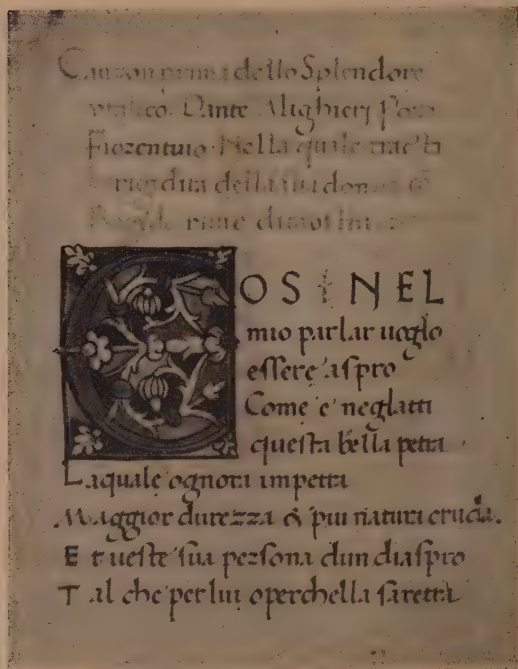 Canzon prima dello Splendore
Dante Alighieri
Fiorentino. Nella quale
della sua donna
rime
COSI NEL
mio parlar uoglio
essere aspro
Come e neglatti
questa bella petra
Laquale ognora impetra
Maggior durezza & piu natura cruda.
E t ueste sua persona dun diaspro
T al che per lui operchella saretra